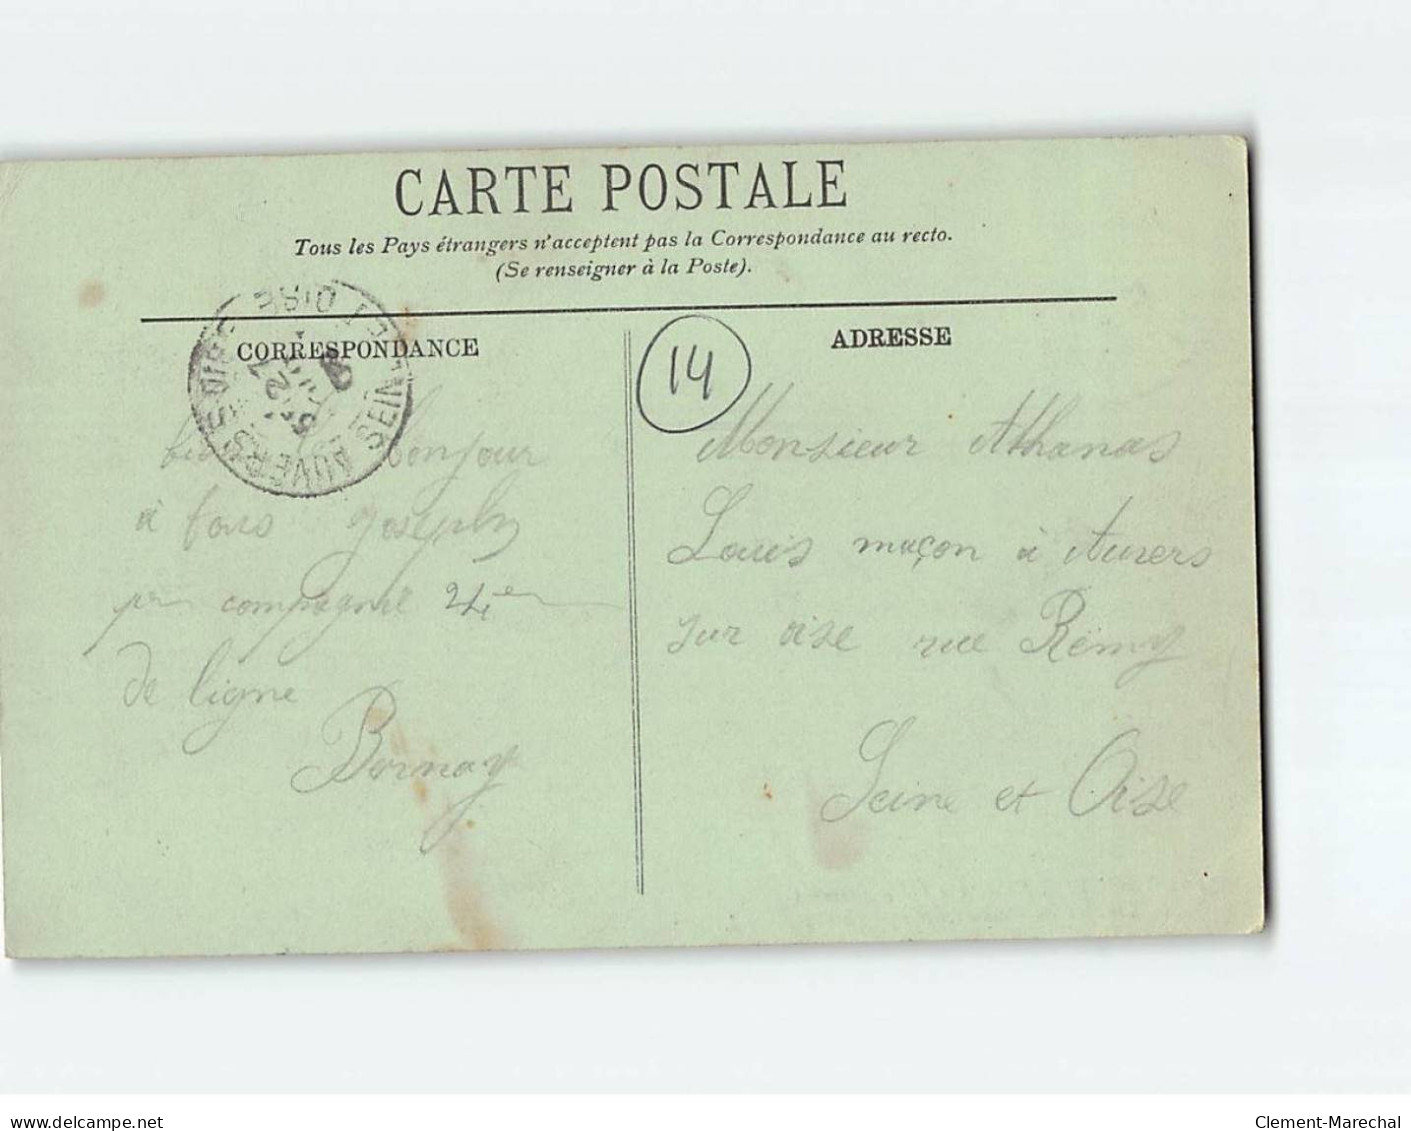 CARTE POSTALE
Tous les Pays étrangers n'acceptent pas la Correspondance au recto.
(Se renseigner à la Poste).
CORRESPONDANCE
bonjour
à tous Joseph
compagnie
de ligne
Bornay
14
ADRESSE
Monsieur Athanas
Louis maçon à Auvers
sur oise rue Rémy
Seine et Oise
AUVERS SEINE ET OISE
www.delcampe.net
Clement-Marechal